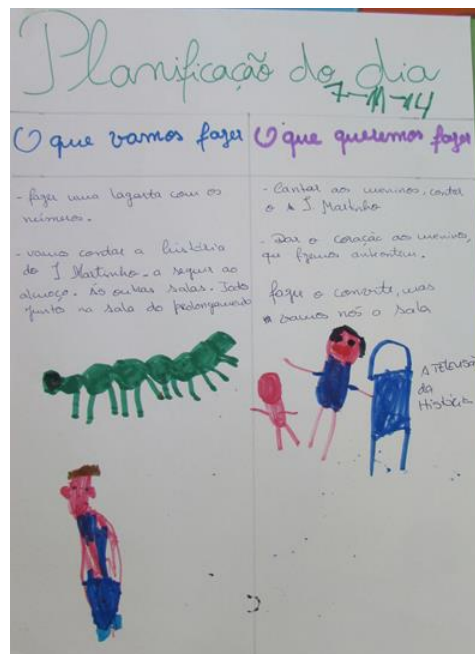 Planificação do dia
7-11-14
O que vamos fazer
- fazer uma lagarta com os
números.
- vamos contar a história
do J Martinho - a seguir ao
almoço. Às outras salas. Todos
juntos na sala do prolongamento
O que queremos fazer
- Cantar aos meninos, contar
o S. Martinho
- Dar o coração aos meninos,
que fizemos anteontem.
fazer o convite, mas
vamos nós à sala
A TELEVISÃO
da
História